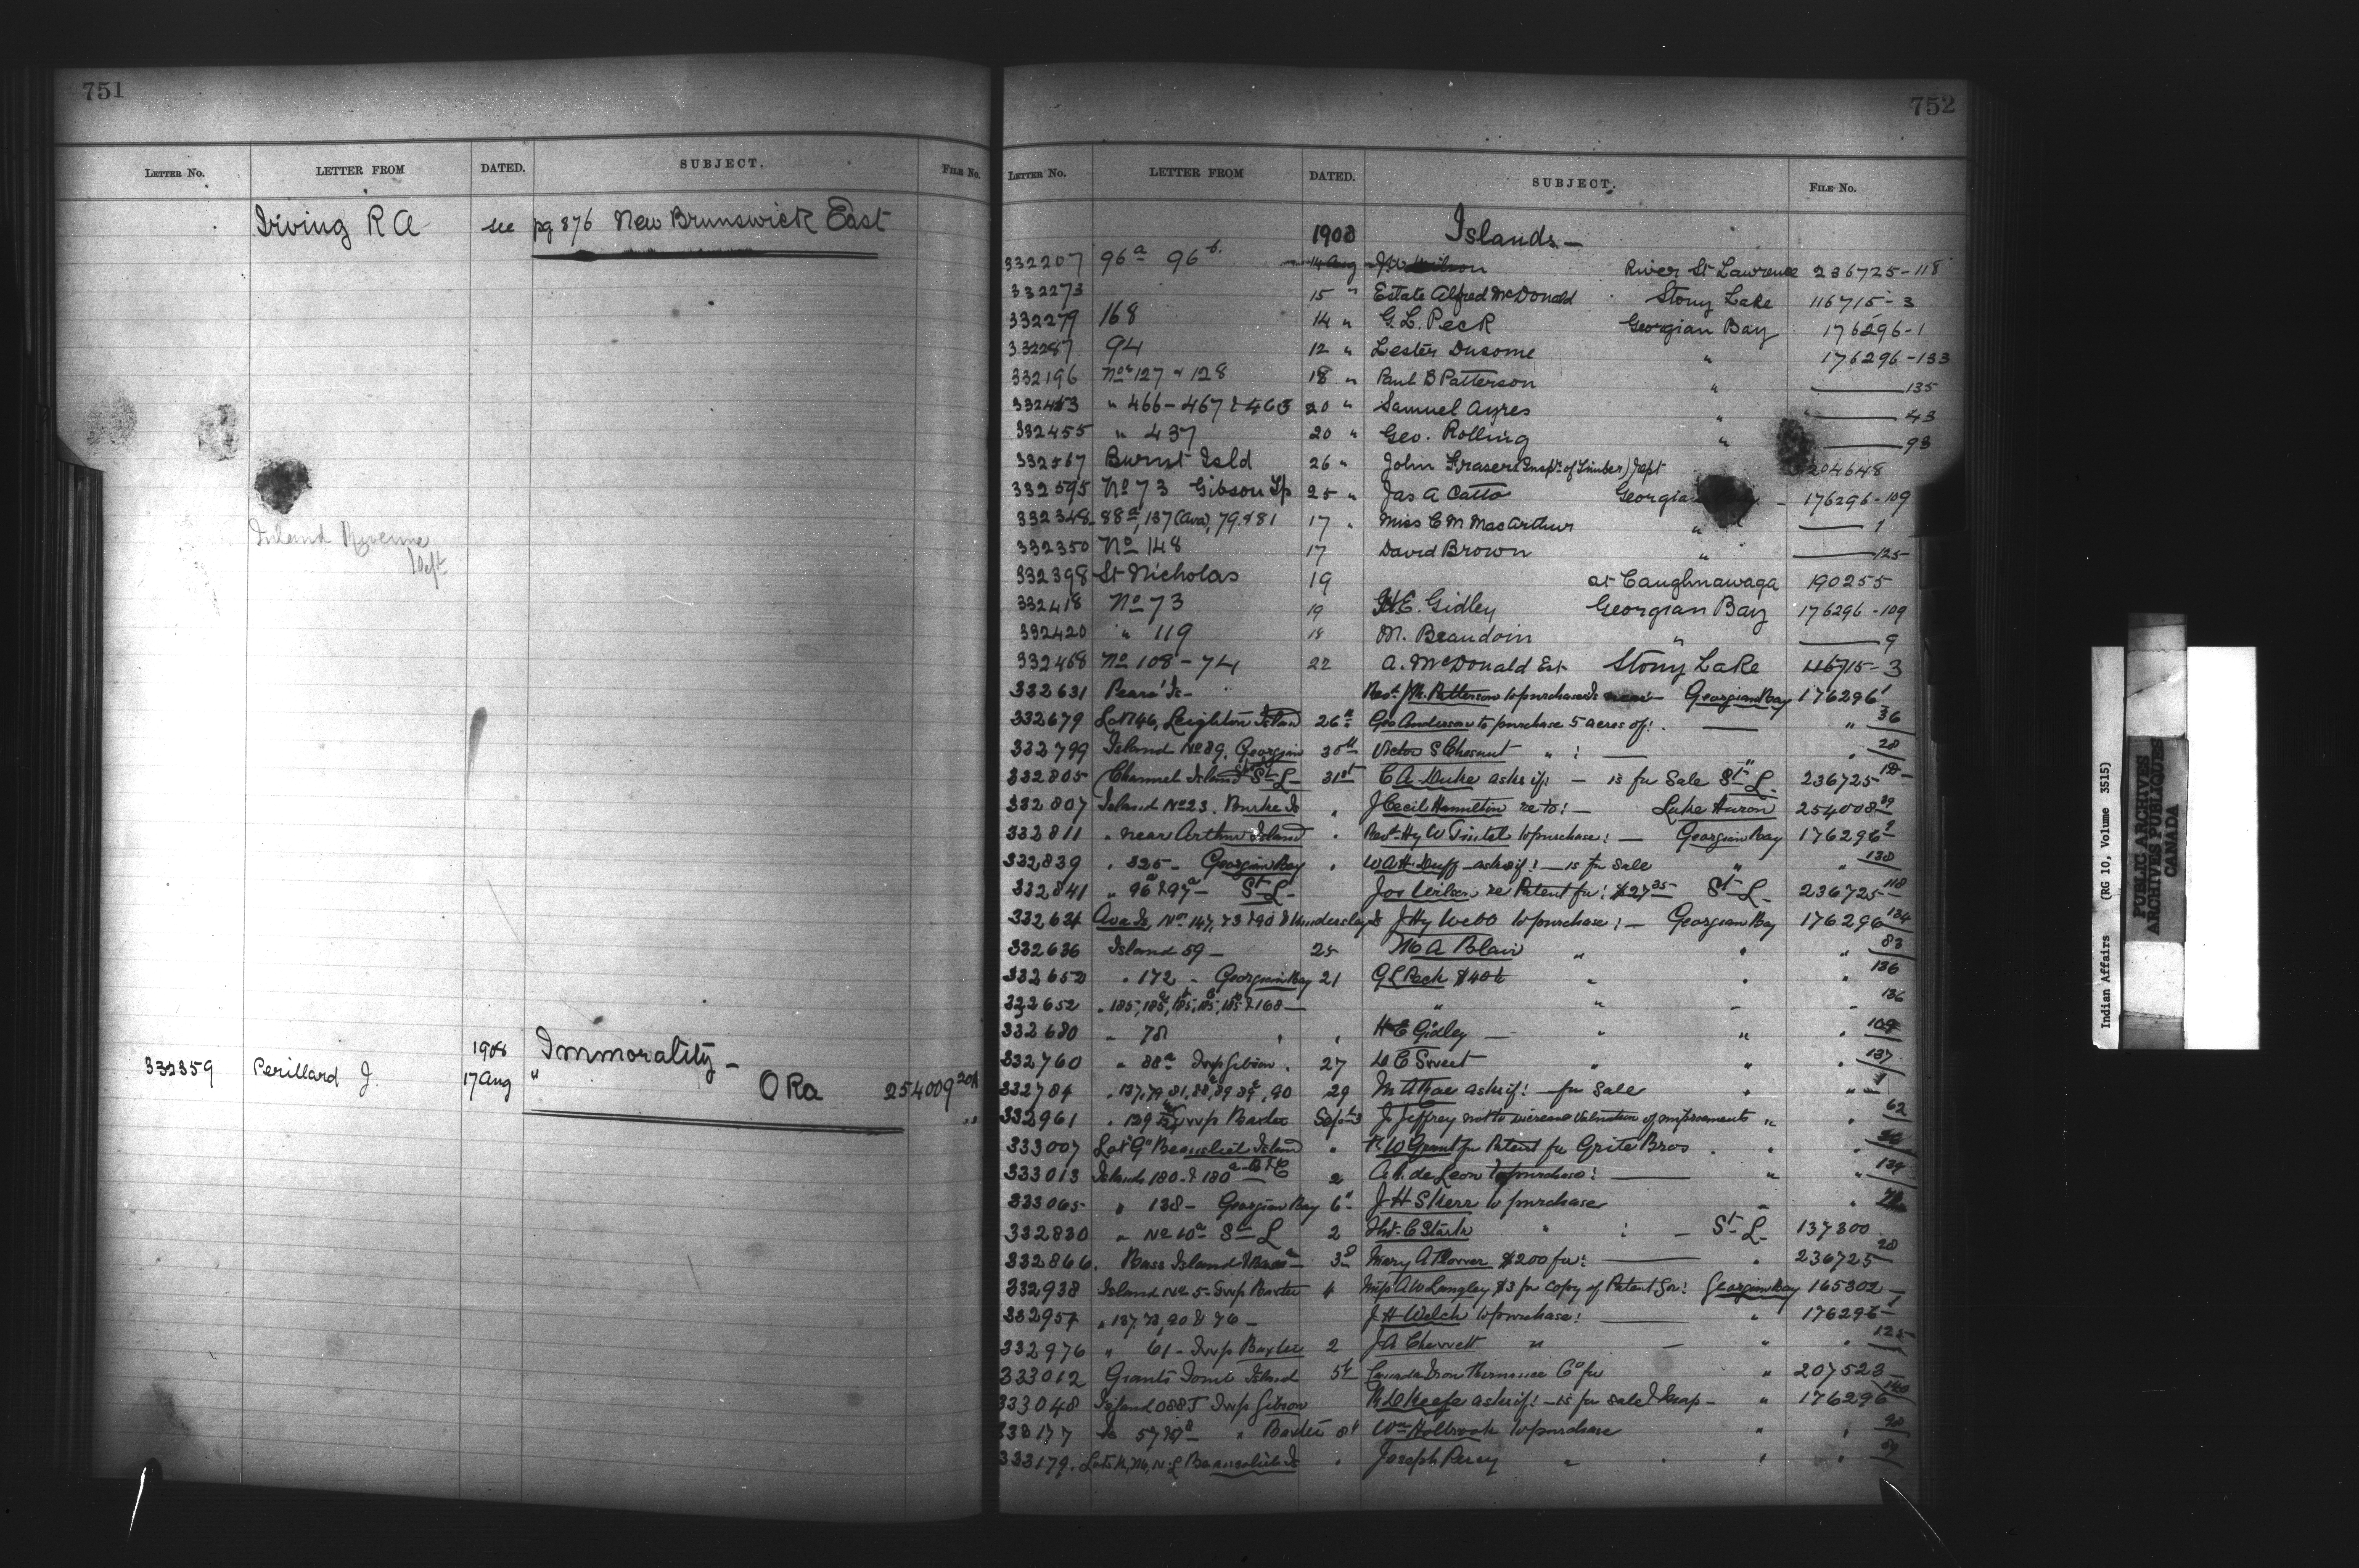 751
LETTER No. LETTER FROM DATED. SUBJECT. FILE No.
Irving R A see pg 876 New Brunswick East
Inland Revenue
Dept
1908 Immorality -
332359 Perillard J. 17 Aug " Oka 254009 20A
752
LETTER No. LETTER FROM DATED. SUBJECT. FILE No.
1908 Islands -
332207 96a 96b 14 Aug J W Wilson River St Lawrence 236725-118
332273 15 " Estate Alfred McDonald Stony Lake 116715-3
332279 168 14 " G. L. Peck Georgian Bay 176296-1
332287 94 12 " Lester Dusome " 176296-133
332196 Nos 127 & 128 18 " Paul B Patterson " 135
332453 " 466-467 & 463 20 " Samuel Ayres " 43
332455 " 437 20 " Geo. Rolling " 93
332567 Burnt Isld 26 " John Fraser (Inspr. of Timber) Dept 204648
332595 No 73 Gibson Tp 25 " Jas A Catto Georgia 176296-109
332348 88a, 137 (Ava), 79 & 81 17 " Miss C M MacArthur " 1
332350 No 148 17 David Brown " 125
332398 St Nicholas 19 at Caughnawaga 190255
332418 No 73 19 H.E. Gidley Georgian Bay 176296-109
332420 " 119 18 M. Beaudoin " 9
332468 No 108-74 22 A. McDonald Est Stony Lake 116715-3
332631 Is- Revd. J M. Patterson to purchase Is near - Georgian Bay 176296 1
332679 Lot 46, Leighton Island 26th Geo Anderson to purchase 5 acres of: " 36
332799 Island No 89, Georgian 30th Victor S Chesnut " : " 28
332805 Channel Island St L - 31st C A Duke asks if: - is for Sale St L. 236725
332807 Island No 23. Burke Is " J Cecil Hamilton re to: - Lake Huron 254008 39
332811 " near Arthur Island " Revd. Hy W to purchase: - Georgian Bay 176296 9
332839 " 325 - Georgian Bay " W A H Duff asks if: - is for Sale " " 138
332841 " 96a & 97a - St L - Jos Wilson re Patent for: $27.35 St L - 236725 118
332634 Ava Is, Nos 147, 73 & 90 & J Hy Webb to purchase: - Georgian Bay 176296 134
332636 Island 59 - 25 M A Blair " " " 83
332652 " 172 - Georgian Bay 21 G L Peck $40 " " 136
332652 " 185, 185, 185, 185, 185 & 168 - " " 136
332680 " 78 " " H E Gidley - " " " 109
332760 " 88a Twp Gibson " 27 D C Sweet " " " 137
332784 " 137, 79, 81, 88, 89, 89a, 90 29 M A Rae asks if: for Sale " " 1
332961 " 139 Twp Baxter Sept 3 J. Jeffrey not to increase valuation of improvements " " 62
333007 Lot "G" Beausoliel Island " R W Grant for Patent for Grite Bros. " "
333013 Islands 180 & 180a-B & C 2 A. P. de Leon to purchase: " " 139
333065 " 138 - Georgian Bay 6" J H S Kerr to purchase " "
332830 " No 10a St L 2 C Stark " : - St L - 137300
332866. Bass Island 3d Mary A $200 for: " 236725 28
332938 Island No 5 - Twp Baxter 4 A W Langley $3 for copy of Patent for: Georgian Bay 165302
332957 " 137, 73, 90 & 76 - J H Welch to purchase: " 176296 1
332976 " 61 - Twp Baxter 2 J A " - " " 125
333012 Grants Tomb Island 5th Canada Iron Furnace Co for " 207523
333048 Island 088J Twp Gibson R D Keefe asks if: - is for sale & map - " 176296 140
333177 Is 57 " Baxter 8" Wm Holbrook to purchase " " 98
333179. Lots K, M, N, L Beausoliel Is " Joseph Percy " " " 89
Indian Affairs (RG 10, Volume 3515)
PUBLIC ARCHIVES
ARCHIVES PUBLIQUES
CANADA